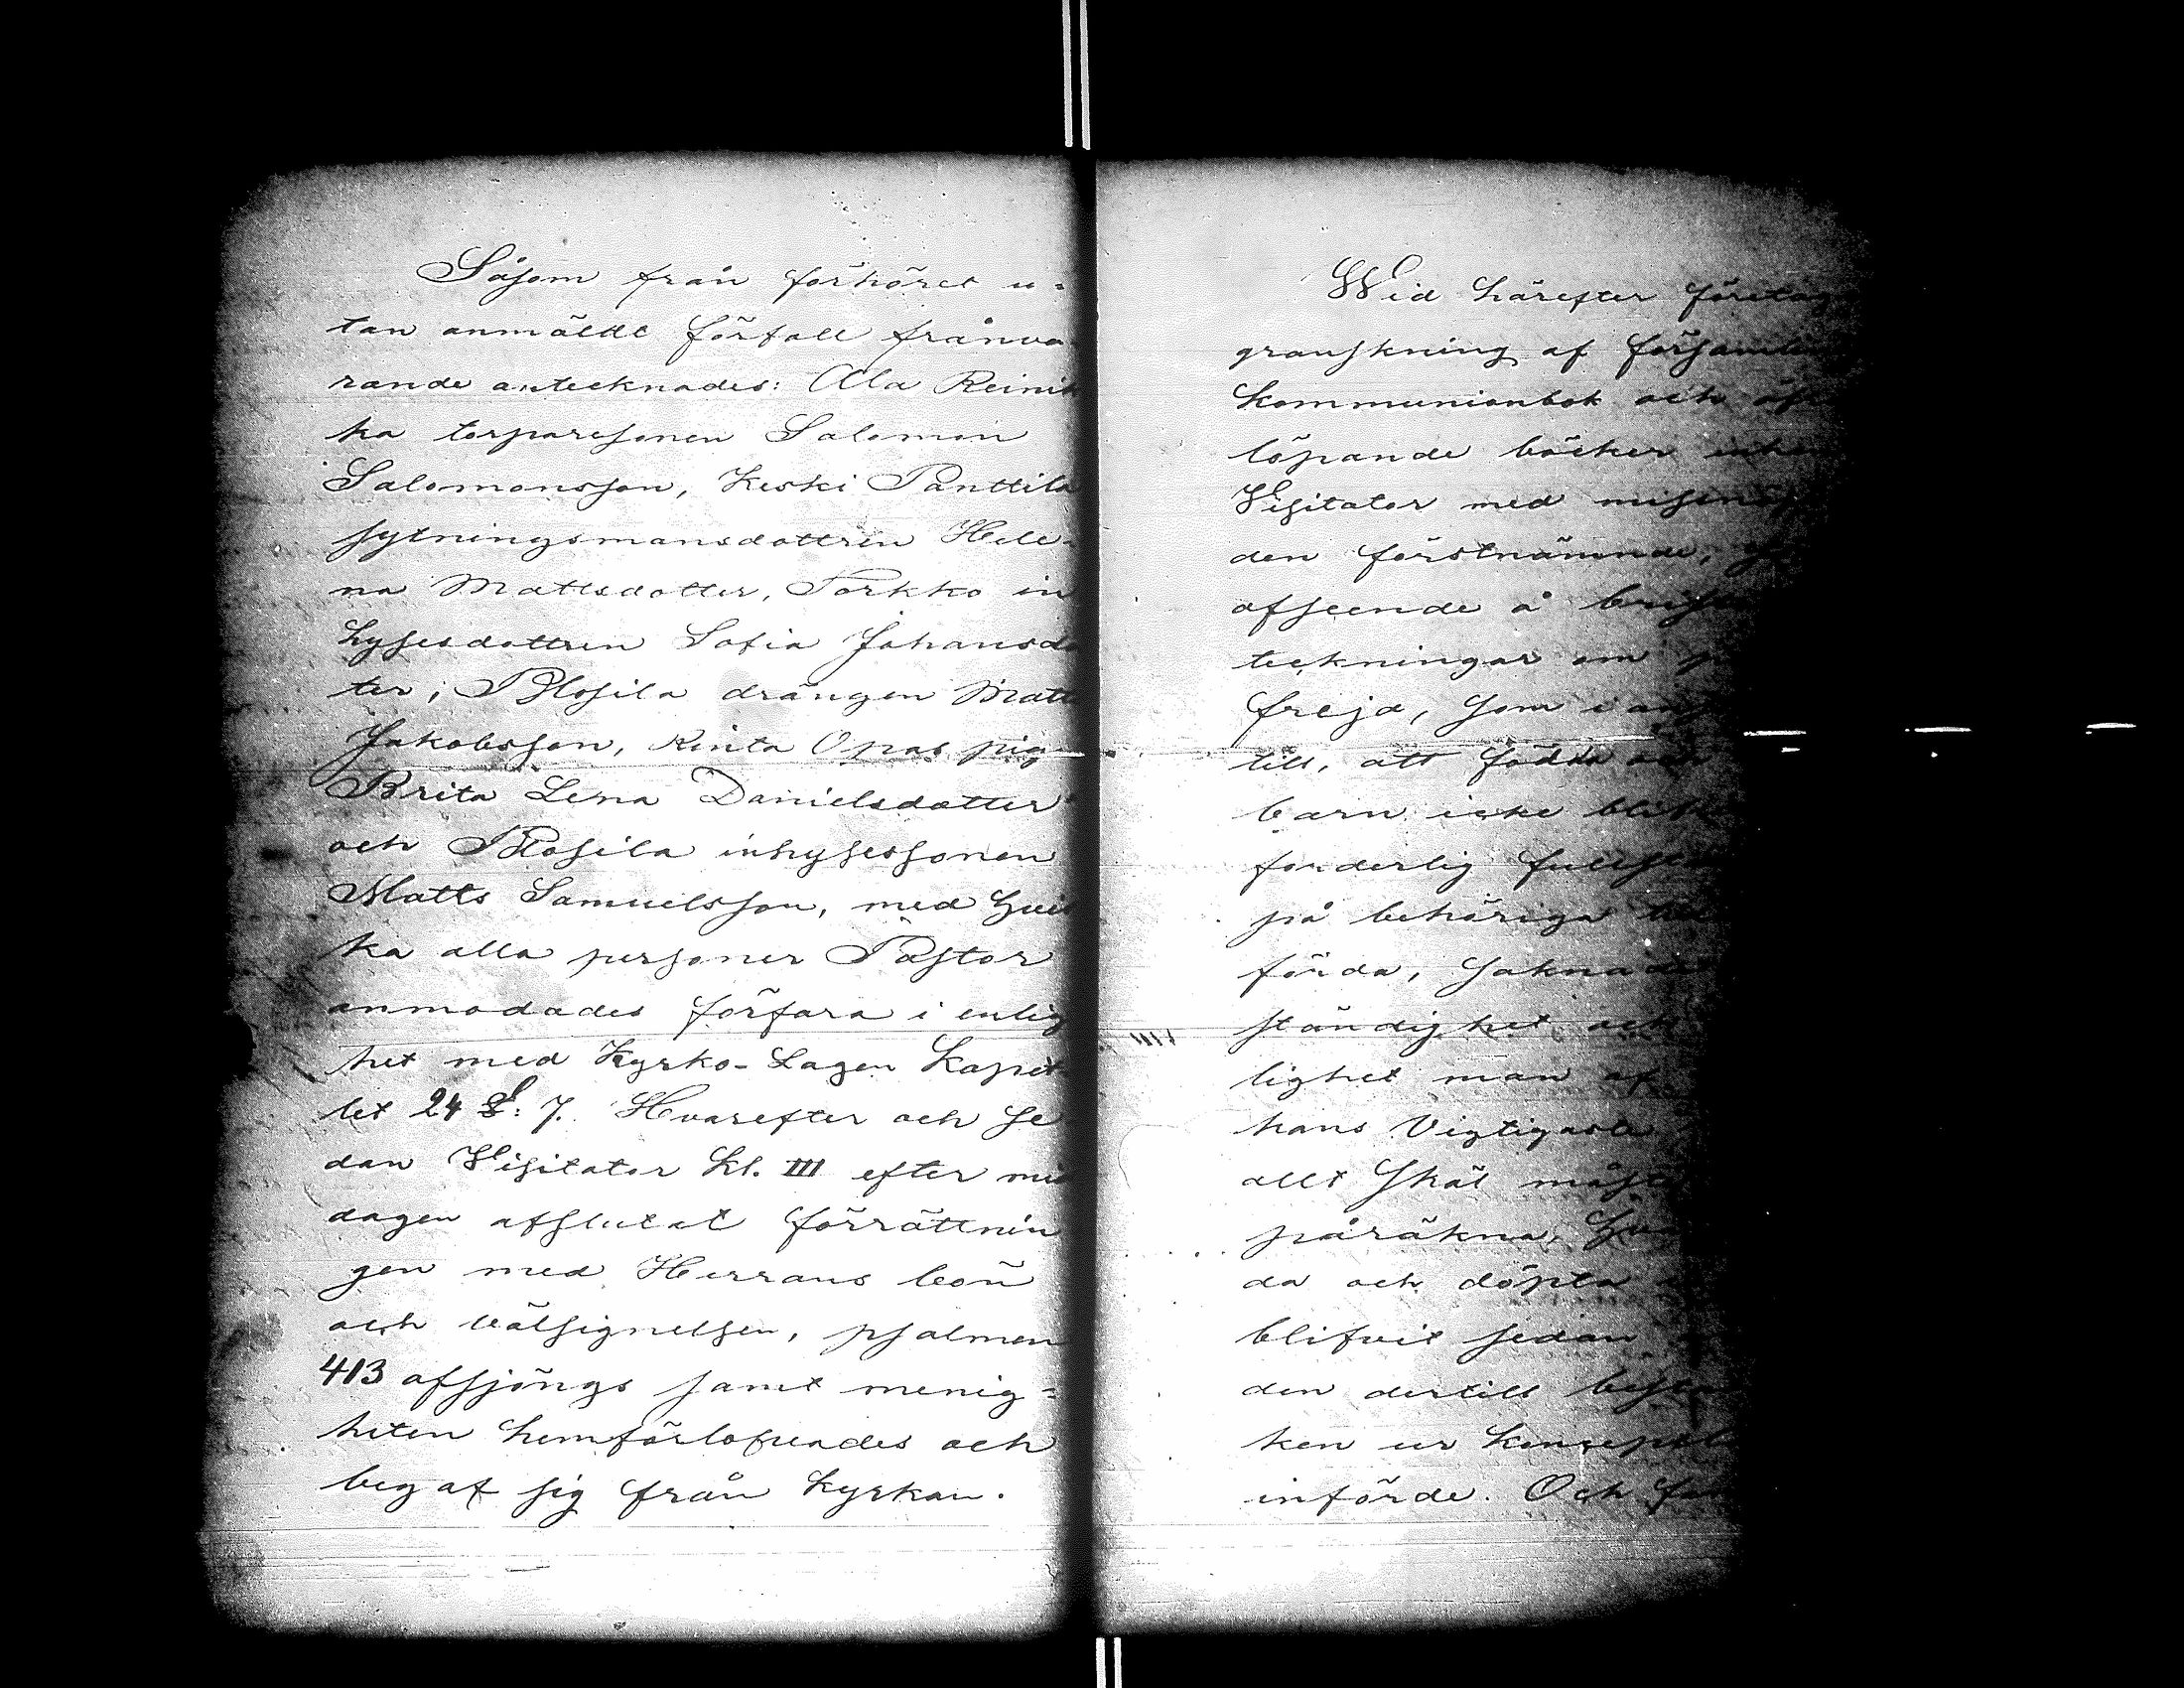 Såsom från förhöret u=
tan anmäldt förfall frånva
rande antecknades: Ala Reinik
ka torparesonen Salomon
Salomonsson, Keski Panttila
sytningsmansdottren Hele-
na Mattsdotter, Porkko in
hysesdottren Sofia Johansdo
ter, Plosila drängen Matts
Jakobsson, Rinta Opas pig
Brita Lena Danielsdotter
och Plosila inhysessonen
Matts Samuelsson, med hvil
ka alla personer Pastor
anmodades förfara i enlig
het med Kyrko-Lagen Kapit
let 24 §: 7. Hvarefter och se
dan Visitator kl. III efter mid
dagen afslutat förrättnin
gen med Herrans bön
och välsignelsen, psalmen
413 afsjöngs samt menig=
heten hemförlofvades och
begaf sig från kyrkan.
Wid härefter företag
granskning af församlin
kommunionbok och öf
löpande böcker
Visitator med missnöj
den förstnämnde,
afseende å
teckningar om
frejd, som i
till, att födda och
barn icke blif
forderlig fullst
på behöriga
förda, saknade
ständighet och
lighet man af
hans vigtigaste
allt skäl måste
påräkna,
da och döpta
blifvit sedan
den dertill
ken ur koncept
införde. Och